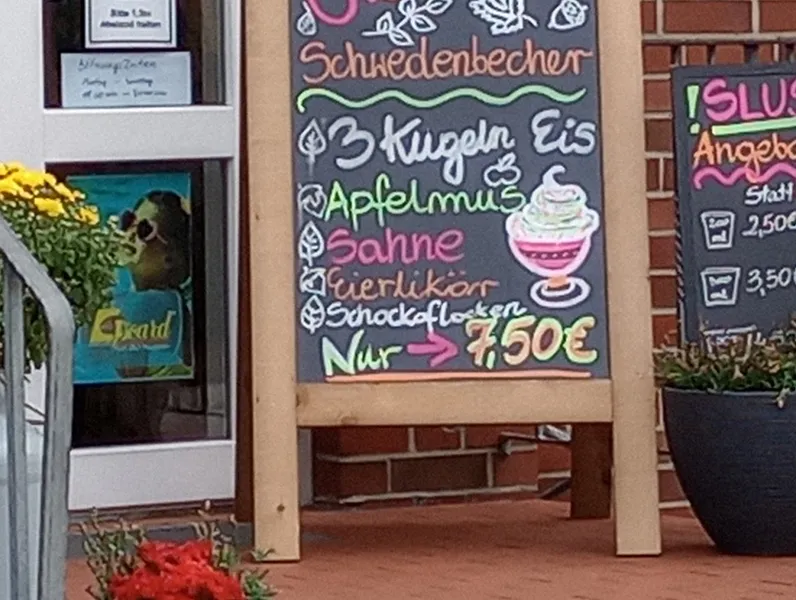 Bitte 1,5m
Abstand halten
Öffnungszeiten
Schwedenbecher
3 Kugeln Eis
Apfelmus
Sahne
Eierlikör
Schockoflocken
Nur → 7,50€
!SLUS
Angebo
Statt
200 ml 2,50€
3,50€